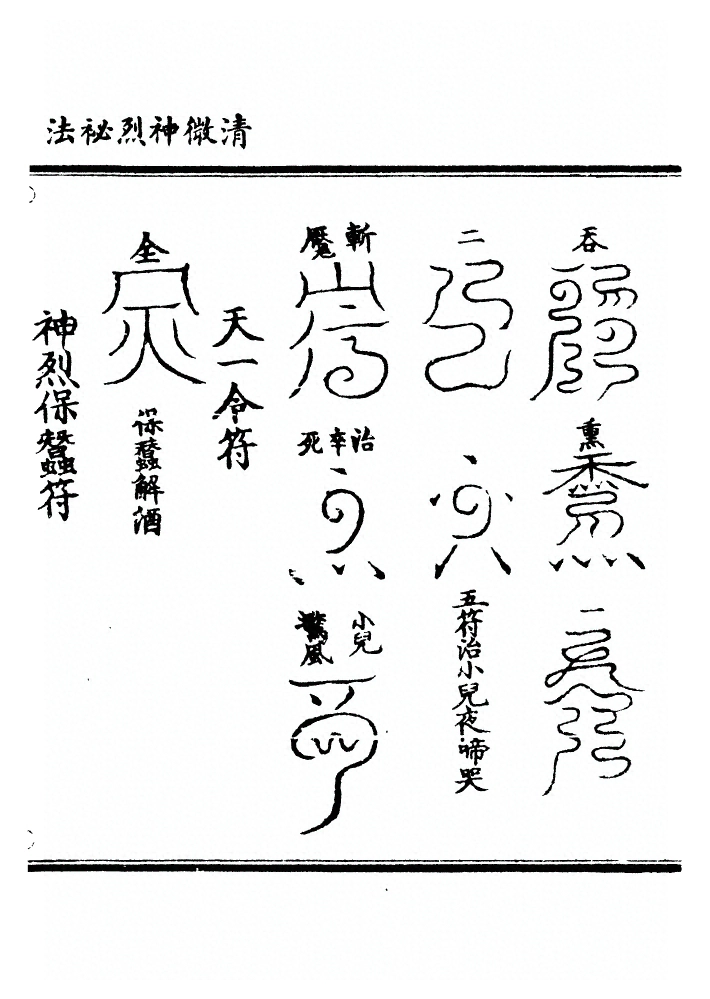 清微神烈祕法
吞
熏
一
二
五符治小兒夜啼哭
斬魘
治卒死
小兒驚風
天一令符
全
保蠶解酒
神烈保蠶符